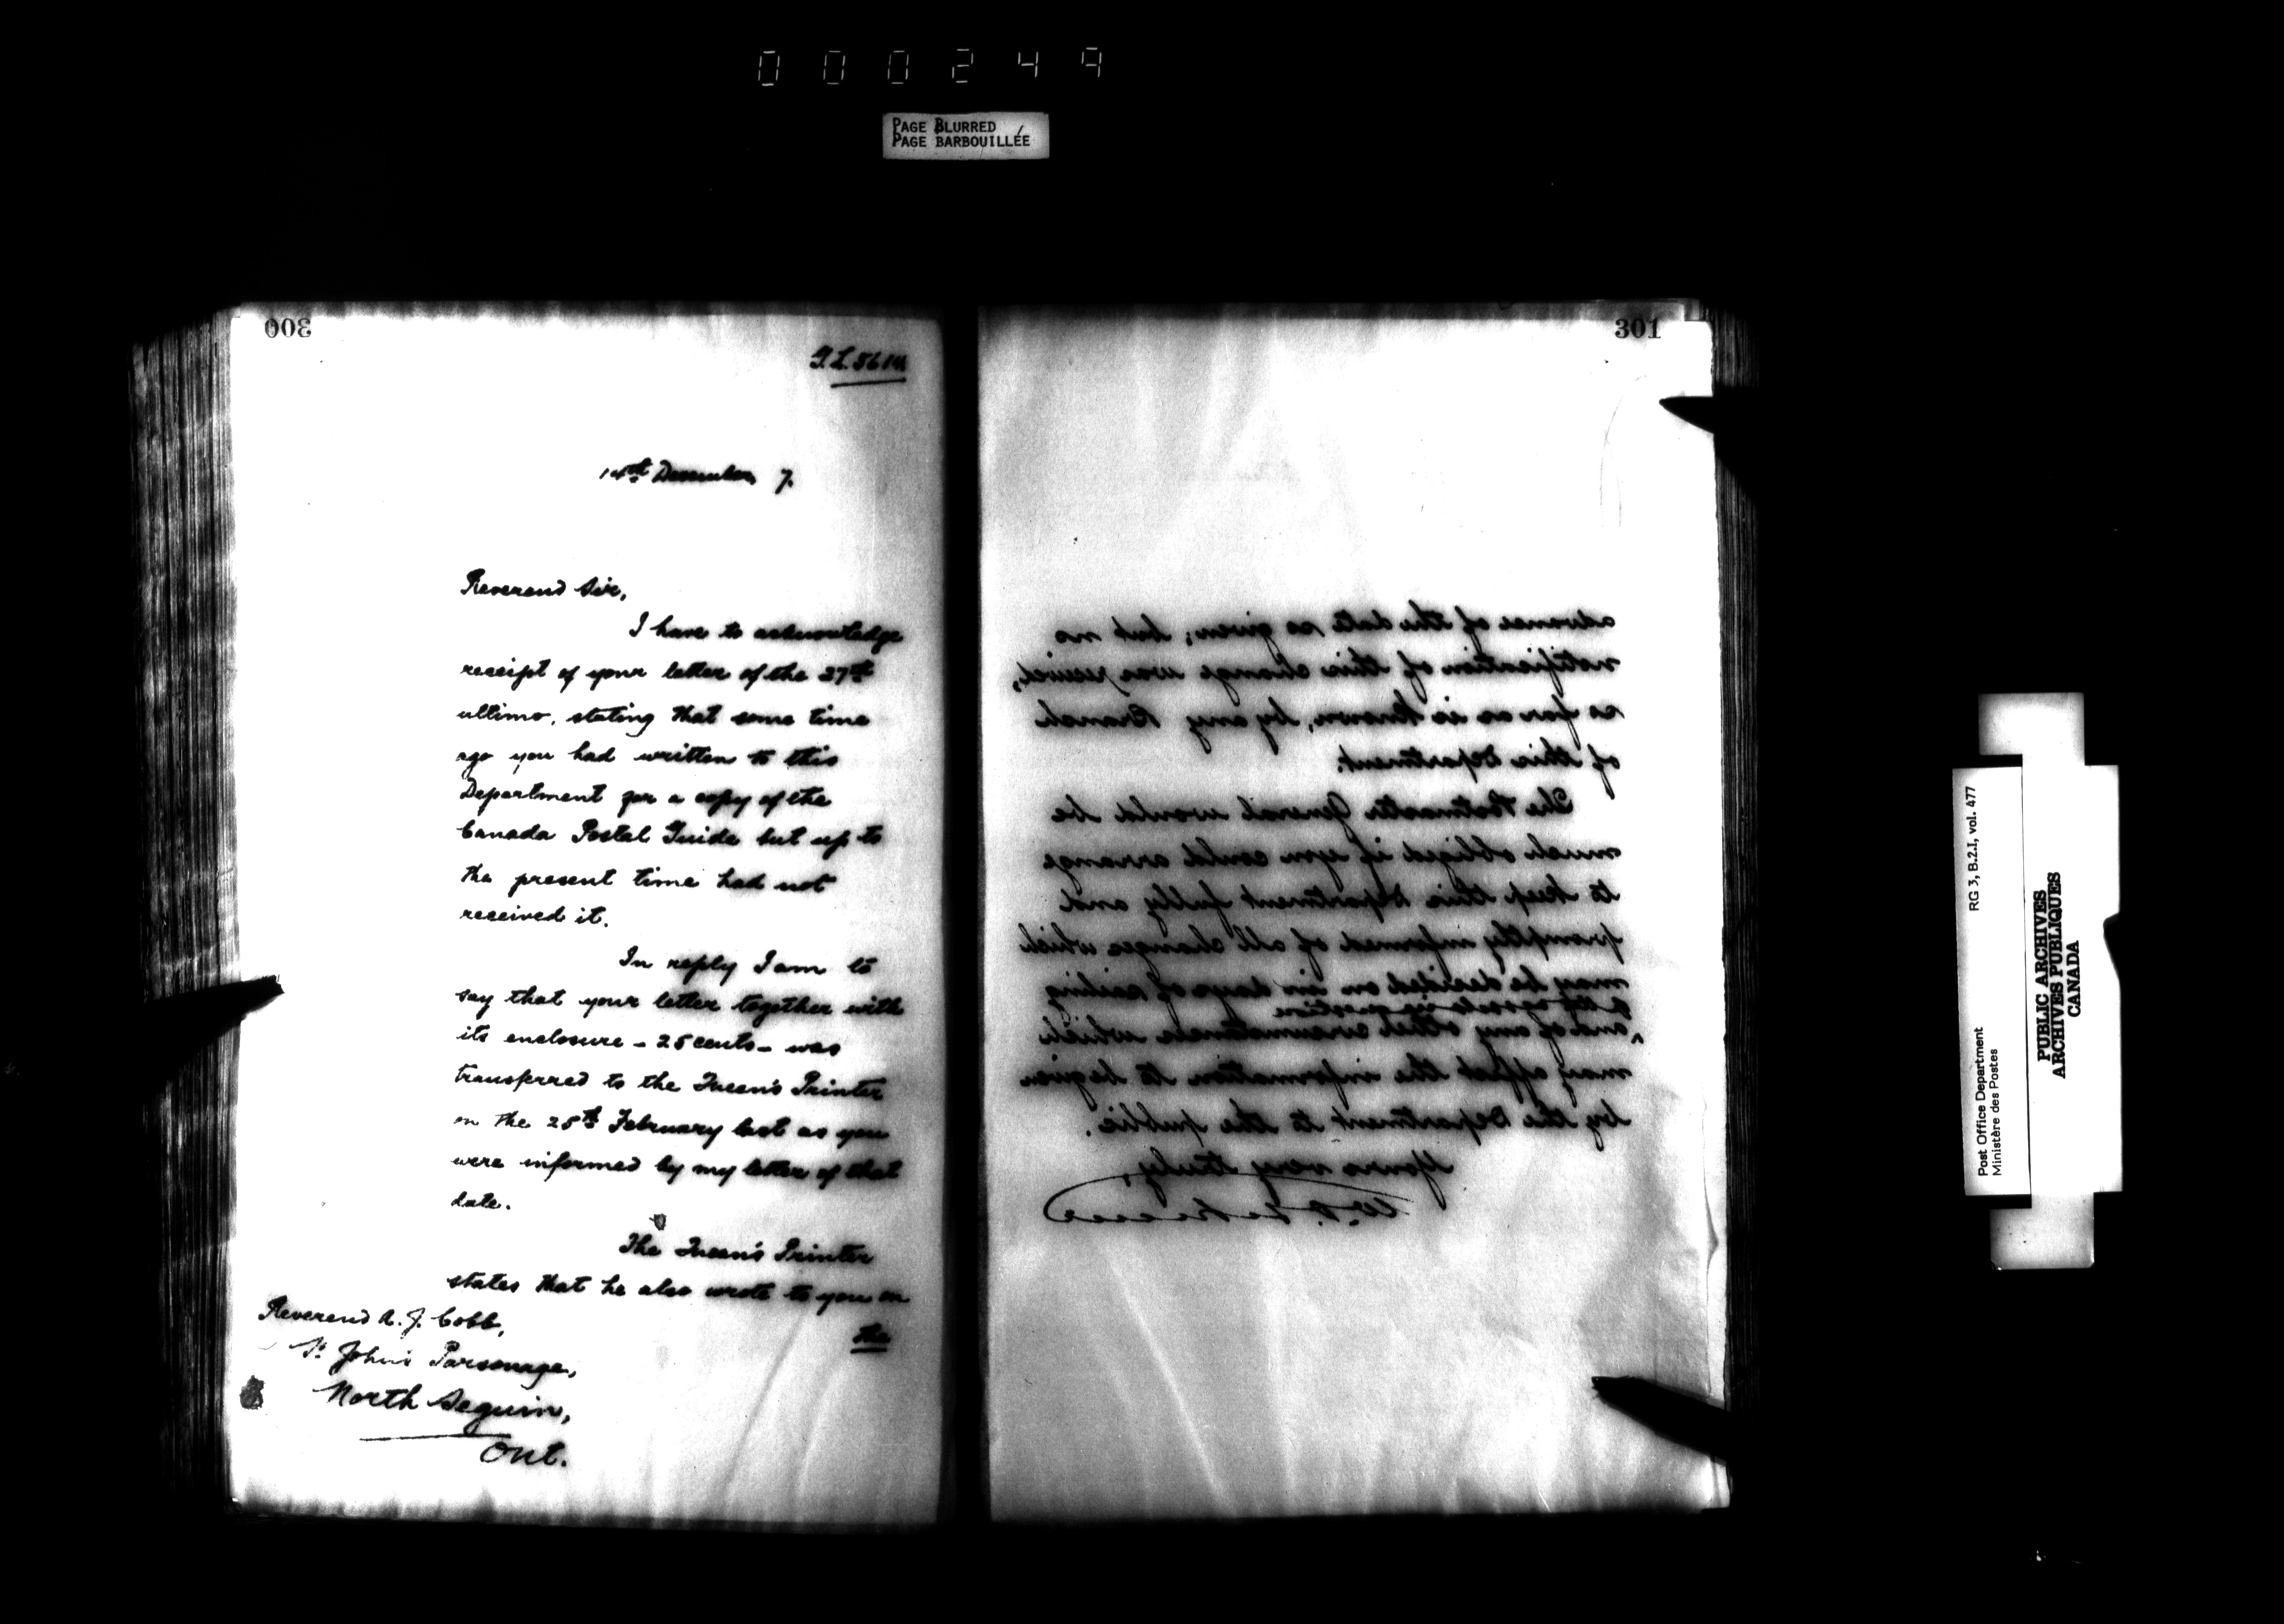 000249
PAGE BLURRED
PAGE BARBOUILLÉE
300
G.L. 5614
14th December, 7.
Reverend Sir,
I have to acknowledge
receipt of your letter of the 27th
ultimo, stating that some time
ago you had written to this
Department for a copy of the
Canada Postal Guide but up to
the present time had not
received it.
In reply I am to
say that your letter together with
its enclosure - 25 cents - was
transferred to the Queen's Printer
on the 25th February last as you
were informed by my letter of that
date.
The Queen's Printer
states that he also wrote to you on
the
Reverend A. J. Cobb,
St John's Parsonage,
North Seguin,
Ont.
301
advance of the date so given; but no
notification of this change was received,
so far as is known, by any Branch
of this Department.
The Postmaster General would be
much obliged if you could arrange
to keep this Department fully and
promptly informed of all changes which
may be decided on in days of sailing
of the vessels in question
and of any other circumstances which
may affect the information to be given
by the Department to the public.
Yours very truly,
Post Office Department
Ministère des Postes
RG 3, B.2.I, vol. 477
PUBLIC ARCHIVES
ARCHIVES PUBLIQUES
CANADA